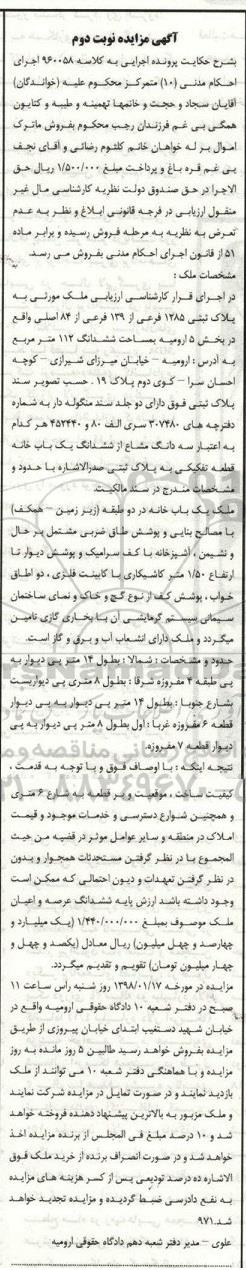 آگهی مزایده نوبت دوم
بشرح حکایت پرونده اجرایی به کلاسه ۹۶۰۰۵۸ اجرای
احکام مدنی (۱۰) متمرکز محکوم علیه (خواندگان)
آقایان سجاد و حجت و خانمها تهمینه و طیبه و کتایون
همگی بی غم فرزندان رجب محکوم بفروش ماترک
اموال بر له خواهان خانم کلثوم رضائی و آقای نجف
بی غم قره باغ و پرداخت مبلغ ۱/۵۰۰/۰۰۰ ریال حق
الاجرا در حق صندوق دولت نظریه کارشناسی مال غیر
منقول ارزیابی در فرجه قانونی ابلاغ و نظر به عدم
تعرض به نظریه به مرحله فروش رسیده و برابر ماده
۵۱ از قانون اجرای احکام مدنی بفروش می رسد.
مشخصات ملک :
در اجرای قرار کارشناسی ارزیابی ملک مورثی به
پلاک ثبتی ۱۳۸۵ فرعی از ۱۳۹ فرعی از ۸۴ اصلی واقع
در بخش ۵ ارومیه بمساحت ششدانگ ۱۱۲ متر مربع
به آدرس : ارومیه – خیابان میرزای شیرازی – کوچه
احسان سرا – کوی دوم پلاک ۱۹ . حسب تصویر سند
پلاک ثبتی فوق دارای دو جلد سند منگوله دار به شماره
دفترچه های ۳۰۷۴۸۰ سری الف ۸۰ و ۴۵۲۴۴۰ هر کدام
به اعتبار سه دانگ مشاع از ششدانگ یک باب خانه
قطعه تفکیکی به پلاک ثبتی صدرالاشاره با حدود و
مشخصات مندرج در سند مالکیت.
ملک یک باب خانه در دو طبقه (زیر زمین – همکف)
با مصالح بنایی و پوشش طاق ضربی مشتمل بر حال
و نشیمن ، آشپزخانه با کف سرامیک و پوشش دیوار تا
ارتفاع ۱/۵۰ متر کاشیکاری با کابینت فلزی ، دو اطاق
خواب ، پوشش کف از نوع گچ و خاک و نمای ساختمان
سیمانی سیستم گرمایشی آن با بخاری گازی تامین
میگردد و ملک دارای انشعاب آب و برق و گاز است.
حدود و مشخصات : شمالا : بطول ۱۴ متر پی دیوار به
پی طبقه ۴ مفروزه شرقا : بطول ۸ متری پی دیواریست
بشارع جنوبا : بطول ۱۴ متر پی دیوار به پی دیوار
قطعه ۶ مفروزه غربا : اول بطول ۸ متر پی دیوار به پی
دیوار قطعه ۷ مفروزه.
نتیجه اینکه : با اوصاف فوق و با توجه به قدمت ،
کیفیت ساخت ، موقعیت و بر قطعه به شارع ۶ متری و
و همچنین شوارع دسترسی و خدمات موجود و قیمت
املاک در منطقه و سایر عوامل موثر در قضیه من حیث
المجموع با در نظر گرفتن مستحدثات همجوار و بدون
در نظر گرفتن تعهدات و دیون احتمالی که ممکن است
وجود داشته باشد ارزش پایه ششدانگ عرصه و اعیان
ملک موصوف بمبلغ ۱/۴۴۰/۰۰۰/۰۰۰ (یک میلیارد و
چهارصد و چهل میلیون) ریال معادل (یکصد و چهل و
چهار میلیون تومان) تقویم و تقدیم میگردد.
مزایده در مورخه ۱۳۹۸/۰۱/۱۷ روز شنبه رأس ساعت ۱۱
صبح در دفتر شعبه ۱۰ دادگاه حقوقی ارومیه واقع در
خیابان شهید دستغیب ابتدای خیابان پیروزی از طریق
مزایده بفروش خواهد رسید طالبین ۵ روز مانده به روز
مزایده و با هماهنگی دفتر شعبه ۱۰ می توانند از ملک
بازدید نمایند و در صورت تمایل در مزایده شرکت نمایند
و ملک مزبور به بالاترین پیشنهاد دهنده فروخته خواهد
شد و ۱۰ درصد مبلغ فی المجلس از برنده مزایده اخذ
خواهد شد و در صورت انصراف برنده از خرید ملک فوق
الاشاره ده درصد تودیعی پس از کسر هزینه های مزایده
به نفع دادرسی ضبط گردیده و مزایده تجدید خواهد
شد.۹۷۱
علوی – مدیر دفتر شعبه دهم دادگاه حقوقی ارومیه